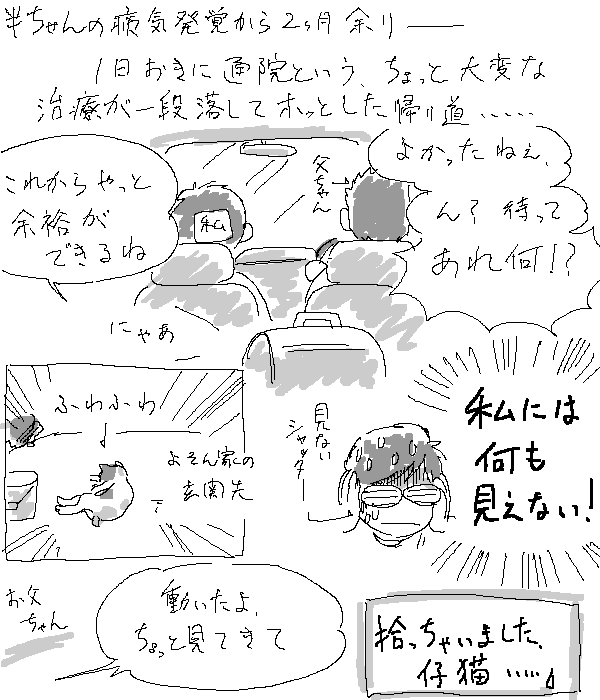 半ちゃんの病気発覚から2ヶ月余り――
1日おきに通院という、ちょっと大変な
治療が一段落してホッとした帰り道……
よかったねぇ、
ん？待って
あれ何!?
父ちゃん
私
これからやっと
余裕が
できるね
にゃあ
ふわふわ
よそん家の
玄関先
見ない
シャッター
私には
何も
見えない！
お父
ちゃん
動いたよ、
ちょっと見てきて
拾っちゃいました、
仔猫……♪